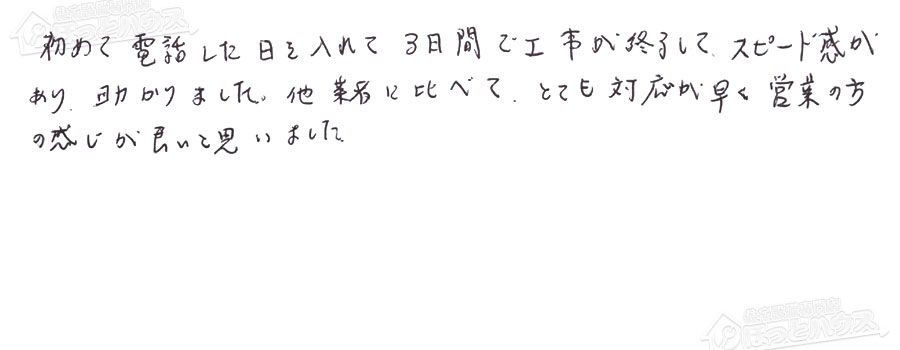 初めて電話した日を入れて3日間で工事が終了して、スピード感が
あり、助かりました。他業者に比べて、とても対応が早く営業の方
の感じが良いと思いました。
ほっとハウス
ほっとハウス